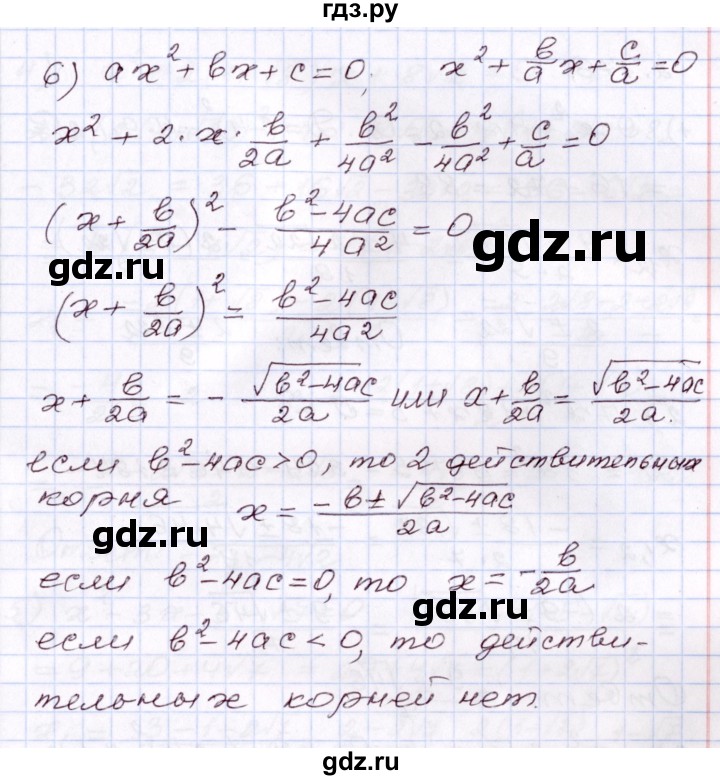 гдз.ру
6) ax² + bx + c = 0; x² + b/a x + c/a = 0
x² + 2·x·b/2a + b²/4a² - b²/4a² + c/a = 0
(x + b/2a)² - b²-4ac/4a² = 0
gdz.ru gdz.ru
(x + b/2a)² = b²-4ac/4a²
x + b/2a = - √b²-4ac/2a или x + b/2a = √b²-4ac/2a.
если b²-4ac>0, то 2 действительных
корня x = -b±√b²-4ac/2a
gdz.ru
если b²-4ac=0, то x = -b/2a
gdz.ru
если b²-4ac<0, то действи-
тельных корней нет.
gdz.ru